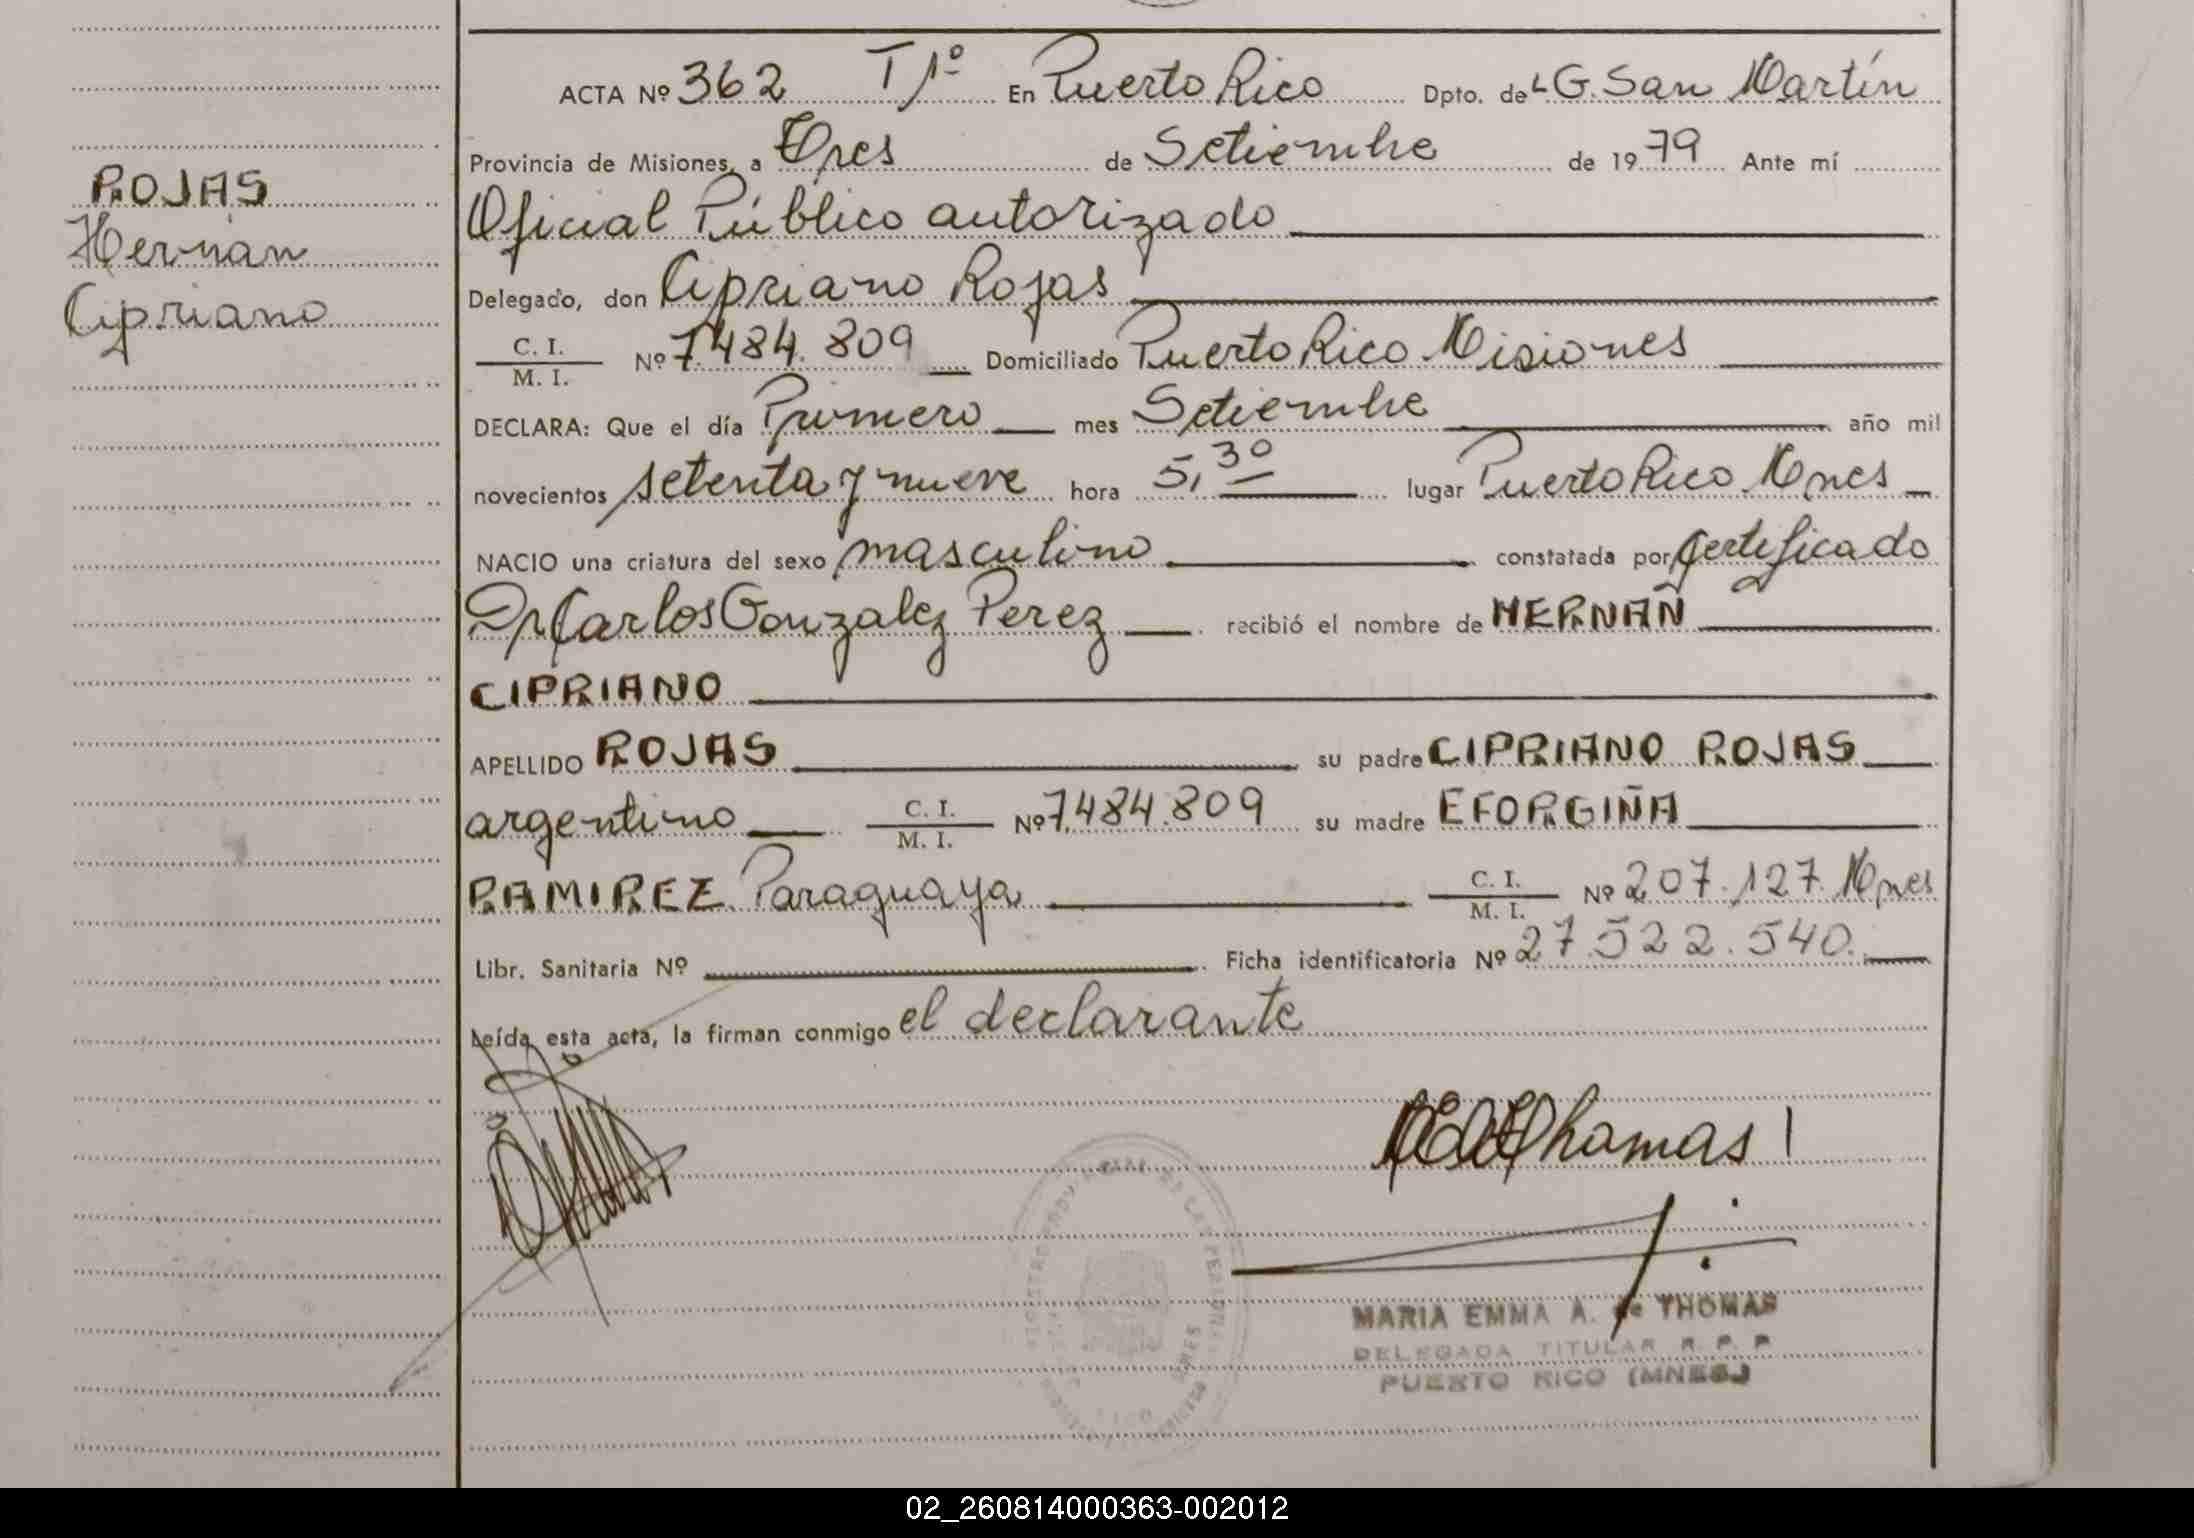 ROJAS
Hernán
Cipriano
ACTA Nº 362 T 1º En Puerto Rico Dpto. de L.G. San Martín
Provincia de Misiones, a Tres de Setiembre de 1979 Ante mí
Oficial Público autorizado
Delegado, don Cipriano Rojas
C. I.
M. I. Nº 7.484.809 Domiciliado Puerto Rico Misiones
DECLARA: Que el día Primero mes Setiembre año mil
novecientos setenta y nueve hora 5,30 lugar Puerto Rico Mnes
NACIO una criatura del sexo masculino constatada por certificado
Dr Carlos Gonzalez Perez recibió el nombre de HERNAÑ
CIPRIANO
APELLIDO ROJAS su padre CIPRIANO ROJAS
argentino C. I.
M. I. Nº 7.484.809 su madre EFORGIÑA
RAMIREZ Paraguaya C. I.
M. I. Nº 207.127 Mnes
Libr. Sanitaria Nº Ficha identificatoria Nº 27.522.540.
Leída esta acta, la firman conmigo el declarante
Thomas
MARIA EMMA A. de THOMAS
DELEGADA TITULAR R. P. P.
PUERTO RICO (MNES.)
02_260814000363-002012